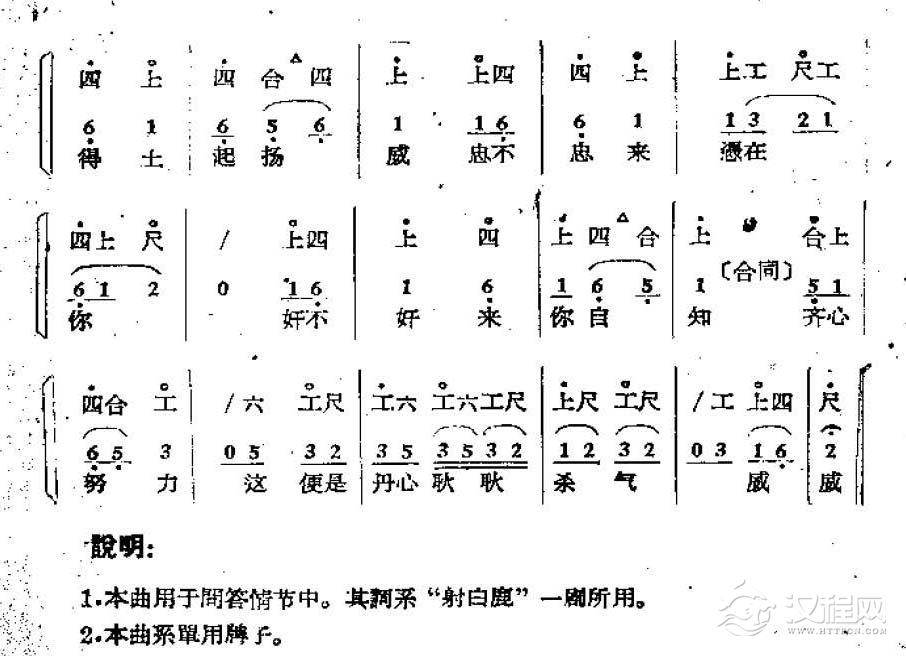 四 上 四 合 四 上 上四 四 上 上工 尺工
6 1 6 5 6 1 1 6 6 1 1 3 2 1
得 士 起 扬 威 忠不 忠 来 憑在
四上 尺 / 上四 上 四 上 四 合 上 合上
〔合同〕
6 1 2 0 1 6 1 6 1 6 5 1 5 1
你 奸不 奸 来 你 自 知 齐心
四合 工 /六 工尺 工六 工六工尺 上尺 工尺 /工 上四 尺
6 5 3 0 5 3 2 3 5 3 5 3 2 1 2 3 2 0 3 1 6 2
努 力 这 便是 丹心 耿 耿 杀 气 威 威
說明:
1.本曲用于問答情节中。其詞系“射白鹿”一劇所用。
2.本曲系單用牌子。
汉程网
WWW.HTTPCN.COM